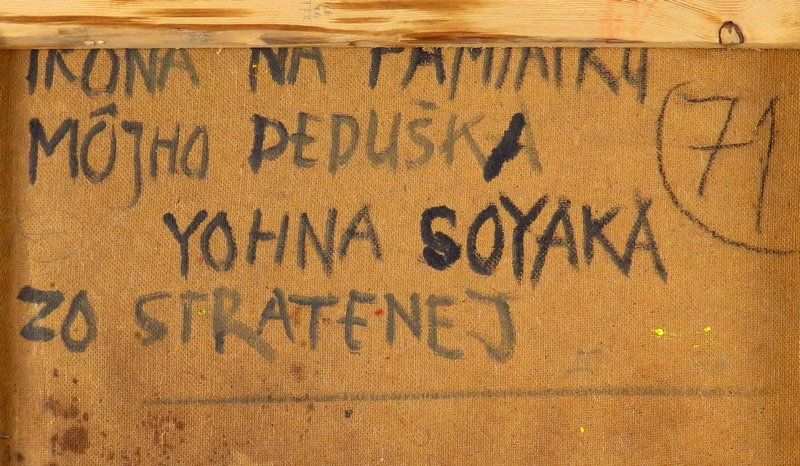 IKONA NA PAMIATKU
MÔJHO DEDUŠKA
71
YOHNA SOYAKA
ZO STRATENEJ